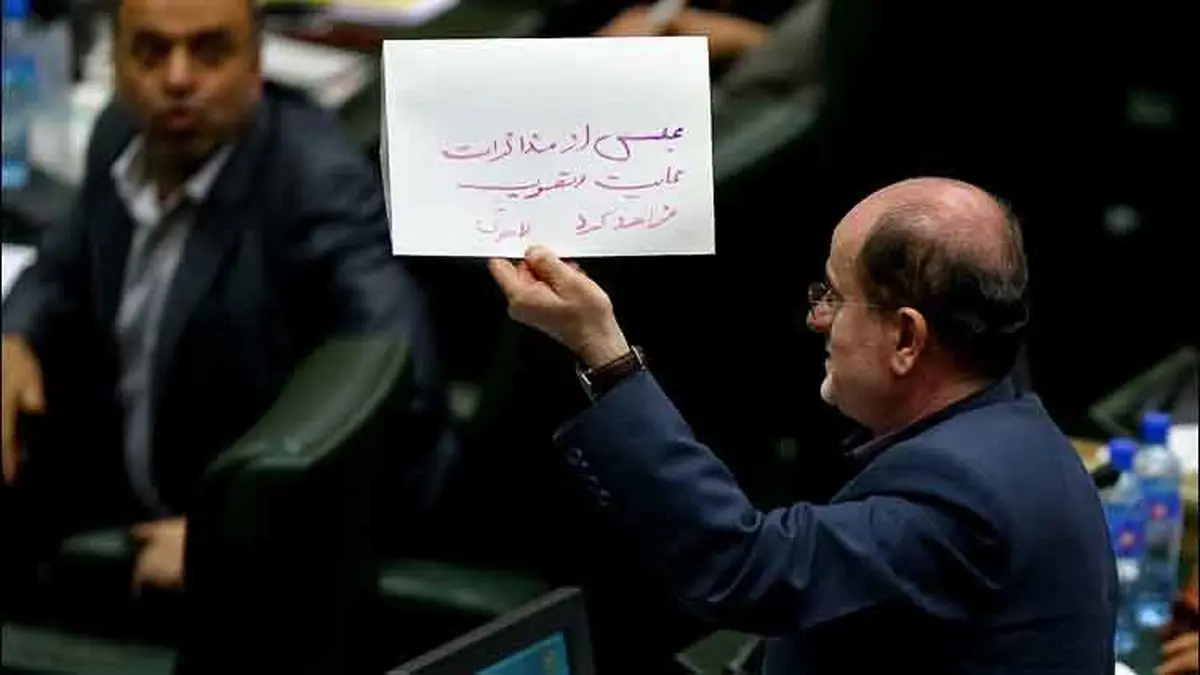 مجلس از مذاکرات
حمایت و تصویب
خواهد کرد